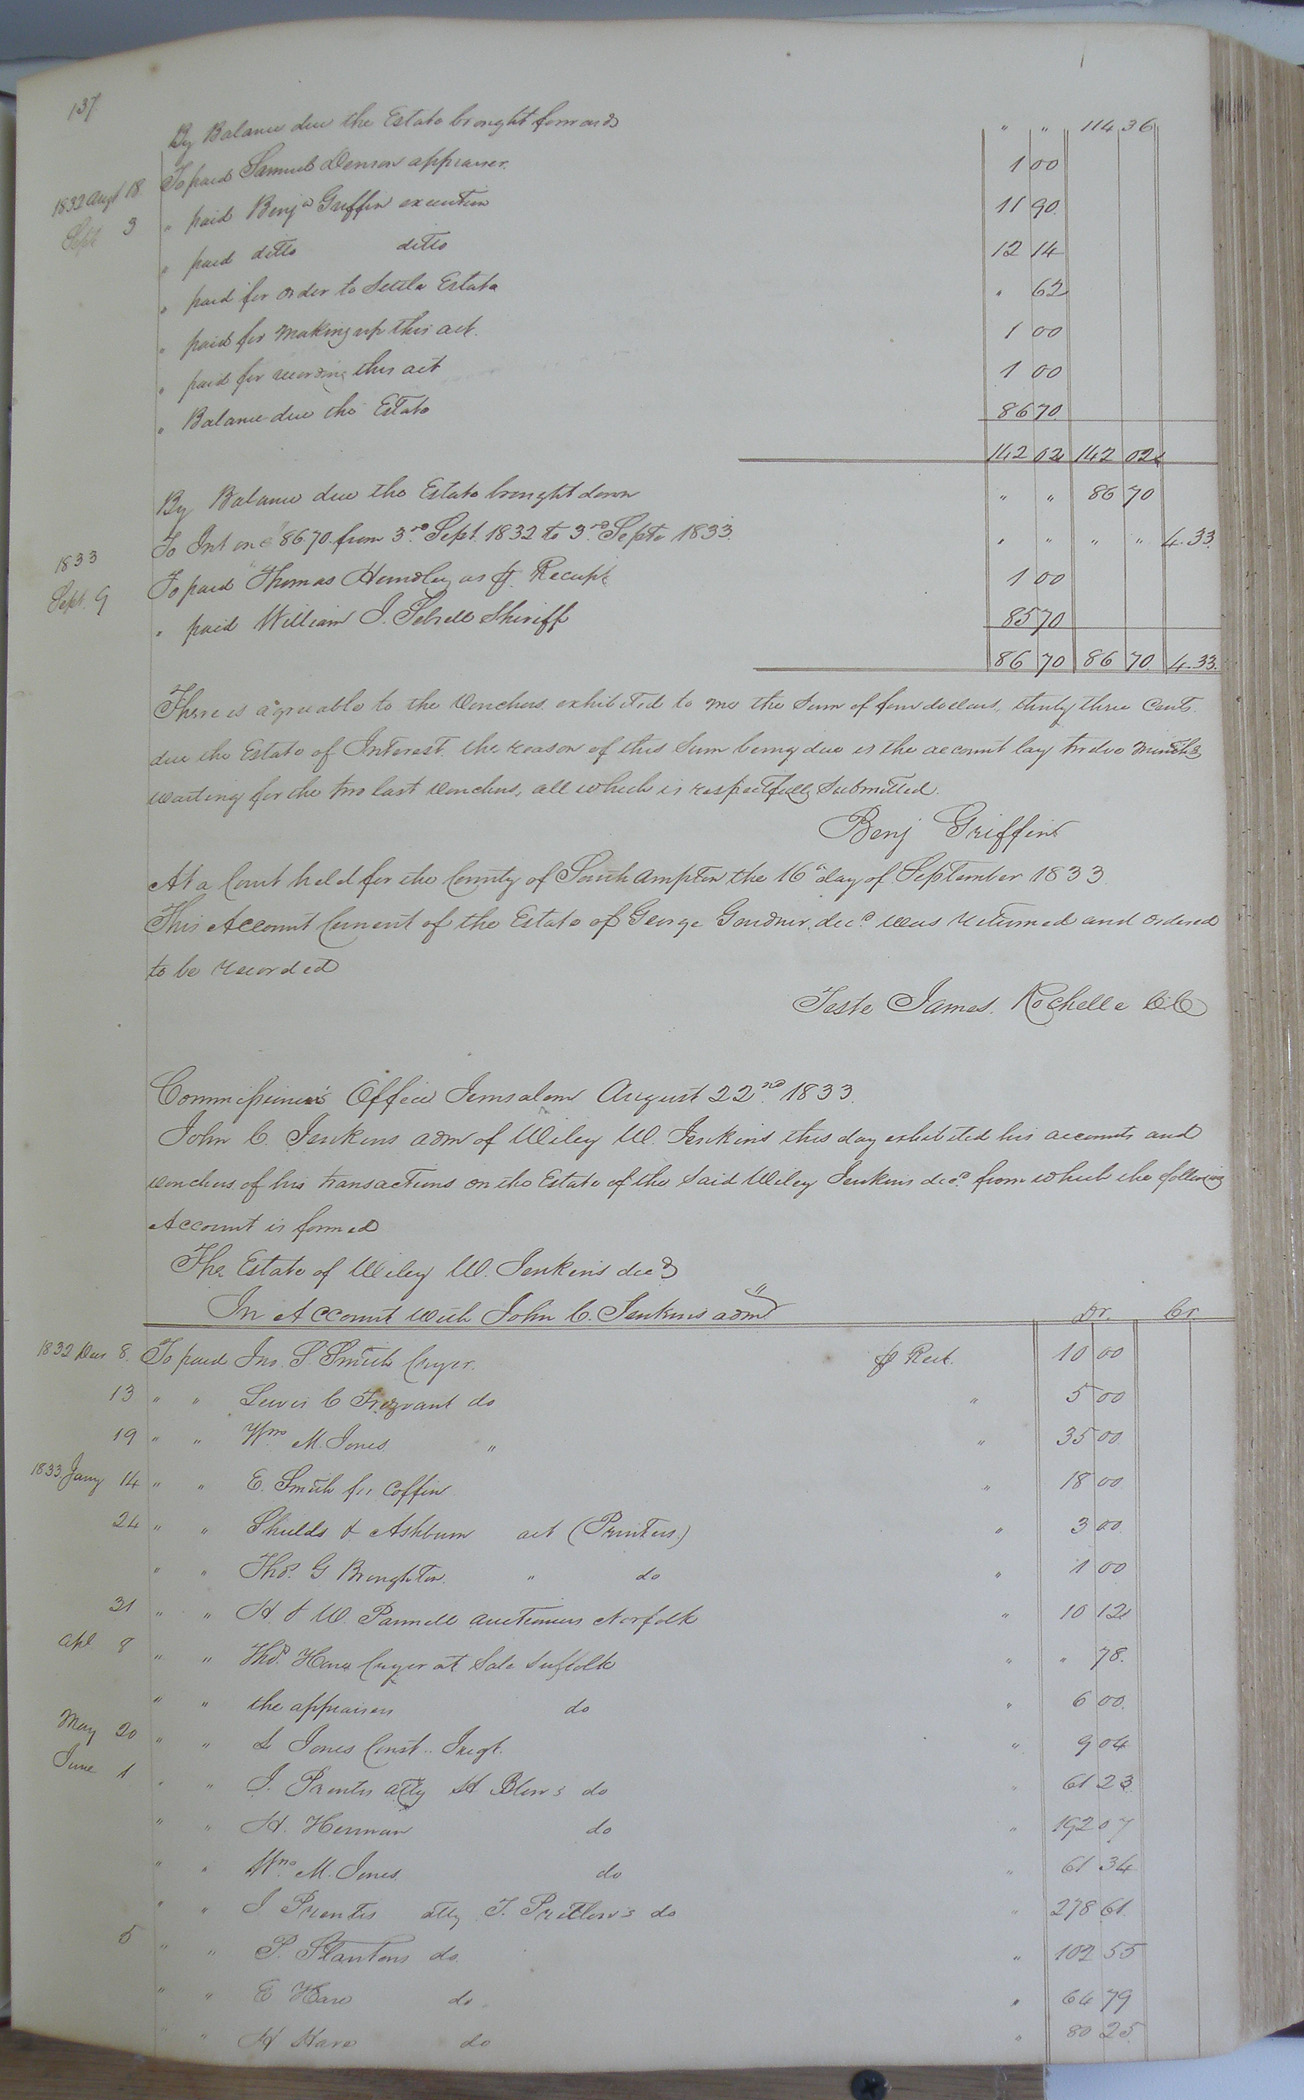 137
By Balance due the Estate brought forward " " 114 36
1832 Augt 18 To paid Samuel Denson appraiser. 1 00
Sept 3 " paid Benja Griffin execution 11 90
" paid ditto ditto 12 14
" paid for order to Settle Estate " 62
" paid for making up this act. 1 00
" paid for recording this act 1 00
" Balance due the Estate 86 70
142 02 142 02
By Balance due the Estate brought down " " 86 70
To Int on $86.70 from 3rd Sept. 1832 to 3rd Septr 1833. " " " " 4.33
1833
Sept. 9 To paid Thomas Hundley as pr. Receipt 1 00
" paid William J. Sebrell Sheriff 85 70
86 70 86 70 4.33.
There is agreeable to the Vouchers exhibited to me the Sum of four dollars, thirty three Cents
due the Estate of Interest the reason of this Sum being due is the account lay twelve Months
waiting for the two last vouchers, all which is respectfully Submitted.
Benj Griffin
At a Court held for the County of Southampton the 16th day of September 1833
This Account Current of the Estate of George Gardner, decd was returned and ordered
to be recorded
Teste James. Rochelle CC
Commissioner's Office Jerusalem August 22nd 1833.
John C. Jenkins adm of Wiley W. Jenkins this day exhibited his accounts and
vouchers of his transactions on the Estate of the Said Wiley Jenkins decd from which the following
Account is formed
The Estate of Wiley W. Jenkins decd
In Account with John C. Jenkins admr Dr. Cr.
1832 Decr 8. To paid Jno. S. Smith Cryer. pr Rect. 10 00
13 " " Lewis C Trezvant do " 5 00
19 " " Wm M. Jones " " 35 00
1833 Jany 14 " " E. Smith for Coffin " 18 00
24 " " Shields & Ashburn act (Printers) " 3 00
" " Thos. G Broughton. " do " 1 00
31 " " H & W. Pannell auctioneers Norfolk " 10 12
Apl 8 " " Thos. Hare Cryer at Sale Suffolk " " 78.
" " the appraisers do " 6 00
May 20 " " L Jones Const.. Judgt. " 9 04
June 1 " " J. Prentis atty H Blow's do " 61 23
" " H. Herman do " 192 07
" " Wm M. Jones do " 61 34
" " J Prentis atty T. Pretlow's do " 278 61
5 " " P. Stantons do. " 102 55
" " E Hare do " 64 79
" " H Hare do " 80 25